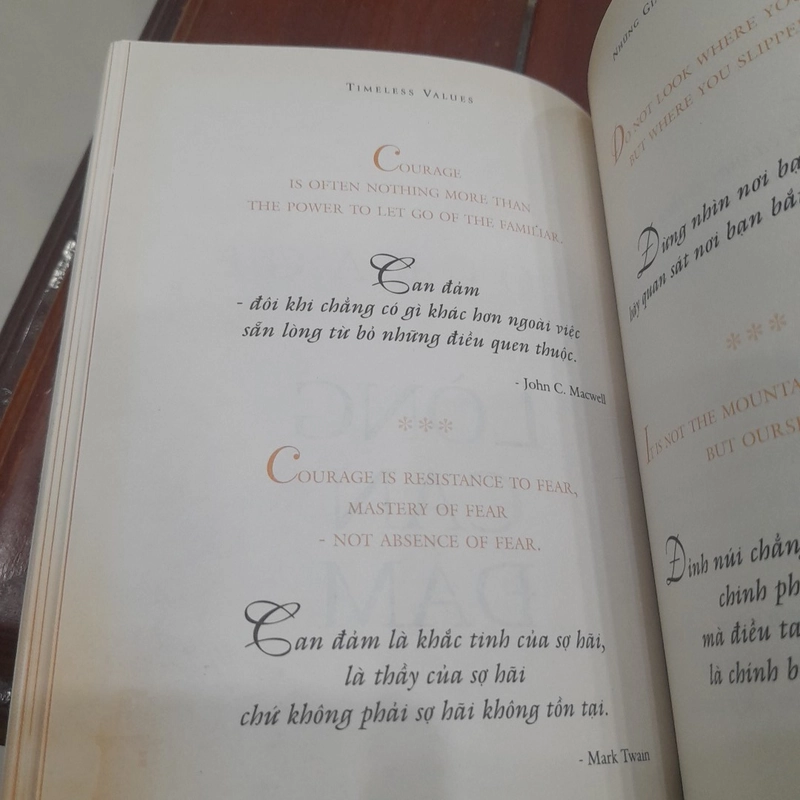 TIMELESS VALUES
COURAGE
IS OFTEN NOTHING MORE THAN
THE POWER TO LET GO OF THE FAMILIAR.
Can đảm
- đôi khi chẳng có gì khác hơn ngoài việc
sẵn lòng từ bỏ những điều quen thuộc.
- John C. Macwell
***
COURAGE IS RESISTANCE TO FEAR,
MASTERY OF FEAR
- NOT ABSENCE OF FEAR.
Can đảm là khắc tinh của sợ hãi,
là thầy của sợ hãi
chứ không phải sợ hãi không tồn tại.
- Mark Twain
NHỮNG
DO NOT LOOK WHERE YOU
BUT WHERE YOU SLIPPE
Đừng nhìn nơi bạ
hãy quan sát nơi bạn bắ
***
IT IS NOT THE MOUNTA
BUT OURSE
Đỉnh núi chẳng
chinh ph
mà điều ta
là chính b
LÒNG
CAN
ĐẢM